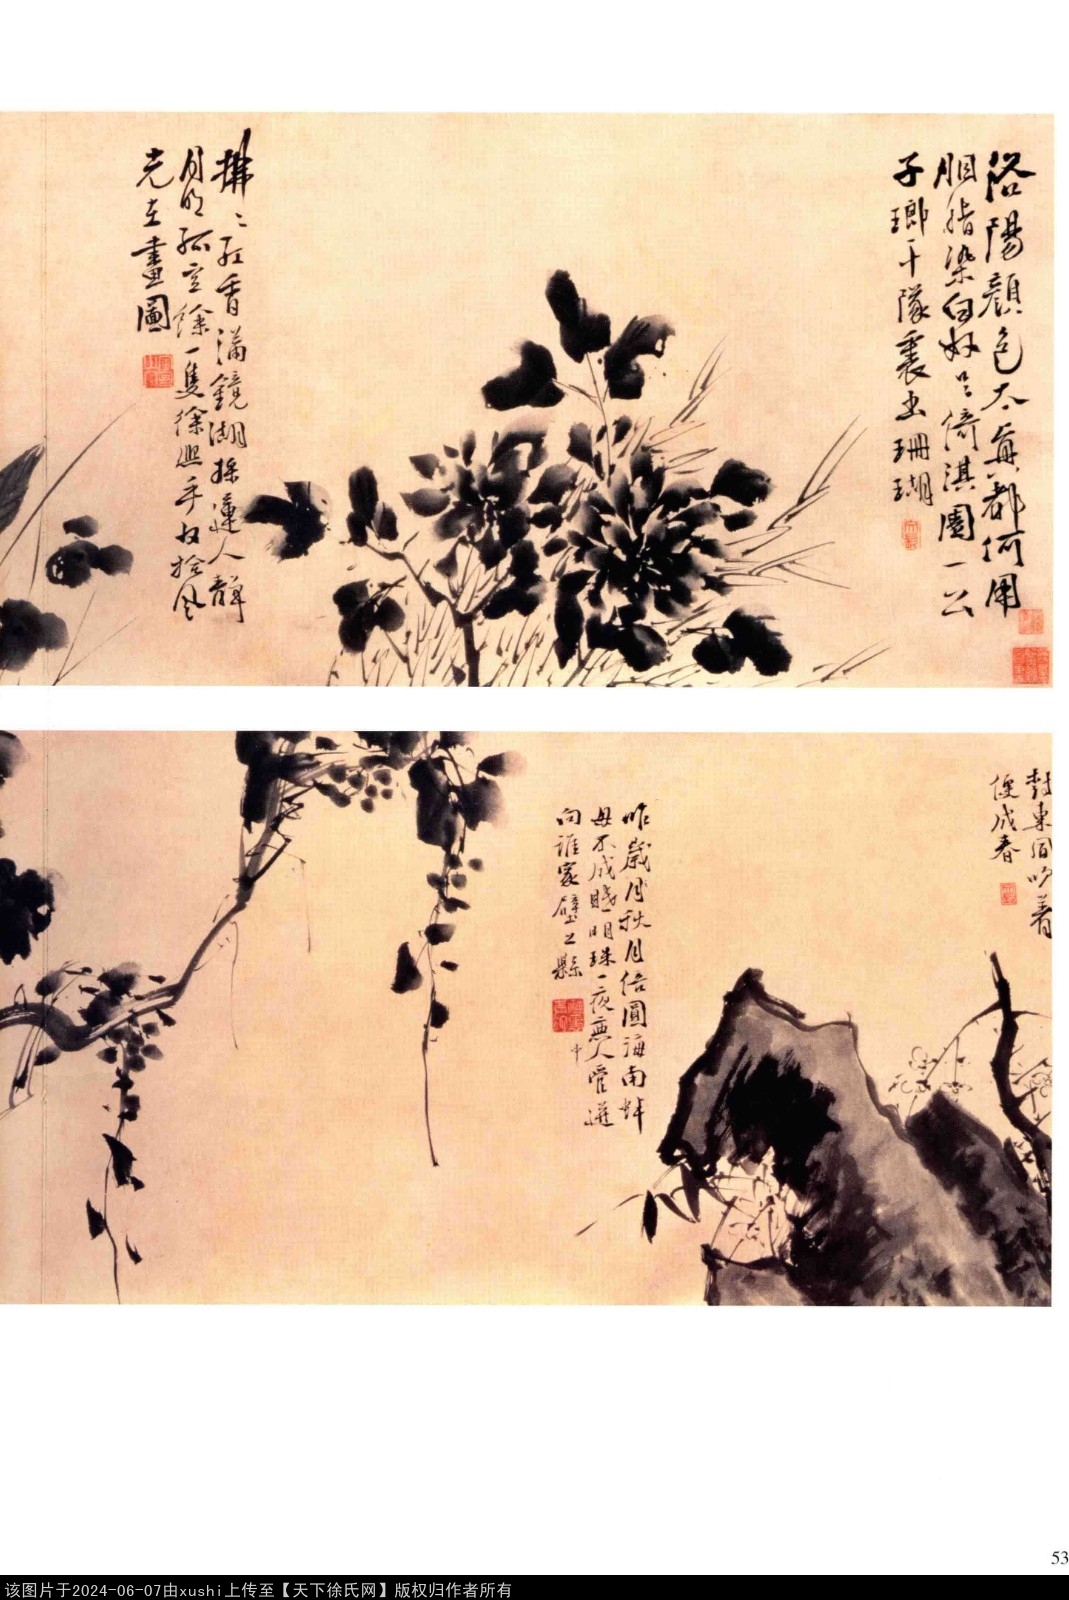 洛陽顏色太真都何用
胭脂染白好是倚淇園一公
子瑯干隊裏出珊瑚
拂二紅香滿鏡湖採蓮人靜
月明孤空餘一隻徐熙手收拾風
光在畫圖
封東風吹著
便成春
昨歲中秋月倍圓海南蚌
母不成眠明珠一夜無人管迸
向誰家壁上懸
中
53
该图片于2024-06-07由xushi上传至【天下徐氏网】版权归作者所有